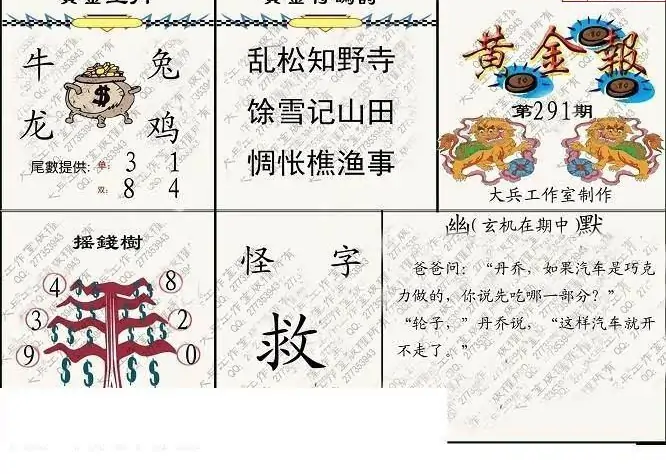 牛 兔
龙 鸡
$
尾數提供: 单: 3 1
双: 8 4
乱松知野寺
馀雪记山田
惆怅樵渔事
黄金報
第291期
大兵工作室制作
摇錢樹
4 8
3 2
9 0
怪 字
救
幽(玄机在期中)默
爸爸问：“丹乔，如果汽车是巧克
力做的，你说先吃哪一部分？”
“轮子，”丹乔说，“这样汽车就开
不走了。”